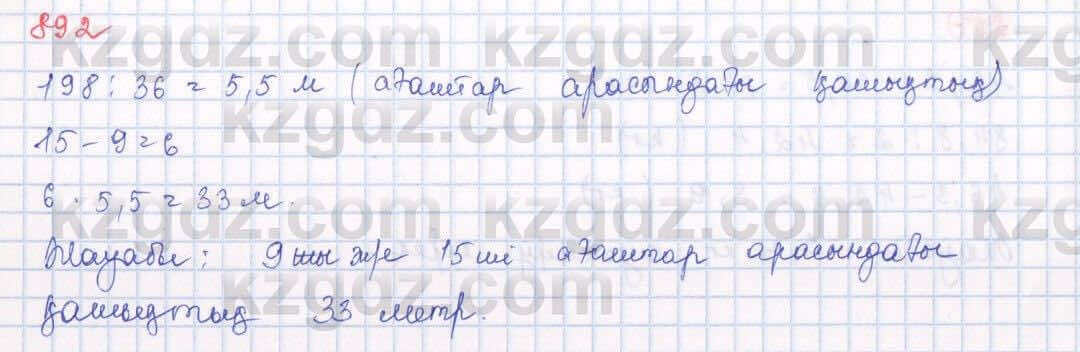 892
198 : 36 = 5,5 м (ағаштар арасындағы қашықтық)
15 - 9 = 6
6 · 5,5 = 33 м.
Жауабы: 9 шы және 15 ші ағаштар арасындағы
қашықтық 33 метр.
kzgdz.com kzgdz.com
kzgdz.com
kzgdz.com kzgdz.com
kzgdz.com